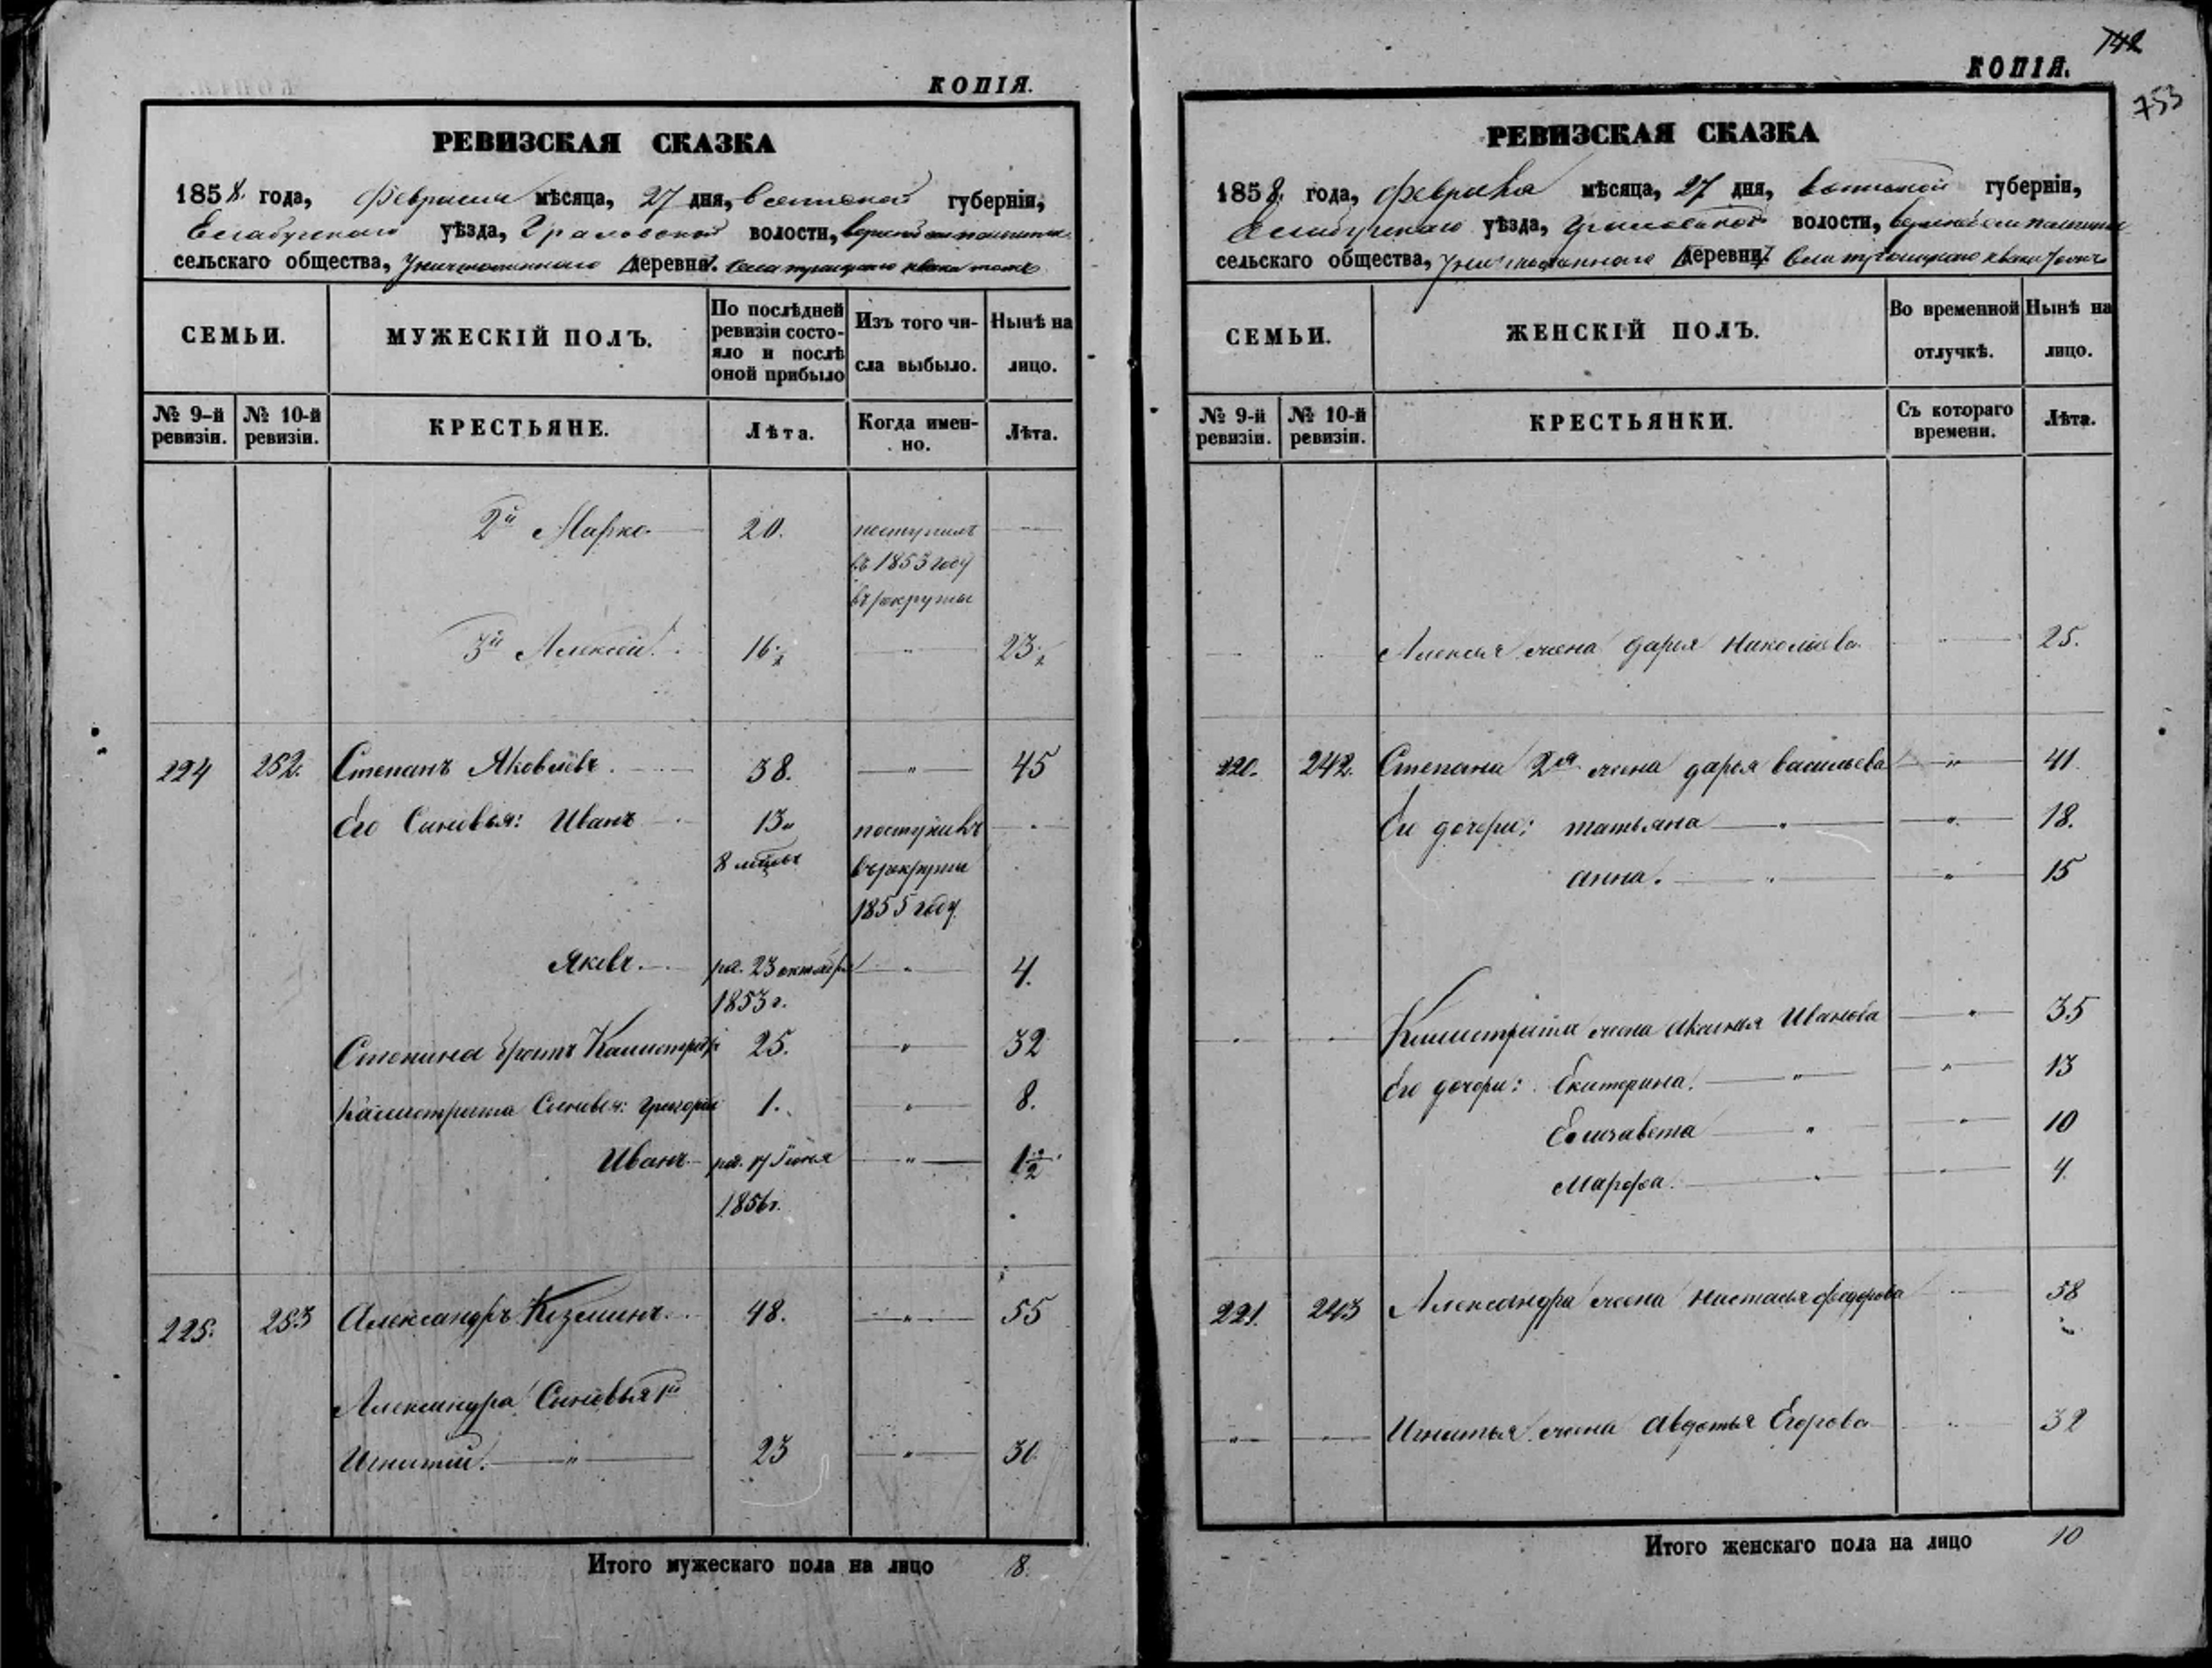 КОПІЯ.
РЕВИЗСКАЯ СКАЗКА
1858. года, Февраля мѣсяца, 27 дня, Вятской губерніи,
Елабужскаго уѣзда, Граховской волости,
сельскаго общества, деревни. Села Троицкаго
СЕМЬИ.
МУЖЕСКІЙ ПОЛЪ.
По послѣдней ревизіи состо-
яло и послѣ
оной прибыло
Изъ того чи-
сла выбыло.
Нынѣ на
лицо.
№ 9-й ревизіи.
№ 10-й ревизіи.
КРЕСТЬЯНЕ.
Лѣта.
Когда имен-
но.
Лѣта.
2й Марко 20. поступилъ
въ 1853 году
въ рекруты
3й Алексей 16½ 23½
224 252. Степанъ Яковлевъ 38. 45
Его Сыновья: Иванъ 13 поступилъ
8 мѣсъ въ рекруты
1855 году
Яковъ род. 23 октября 4.
1853 г.
Степана братъ Калистратъ 25. 32
Калистрата Сыновья: Григорій 1. 8.
Иванъ род. 17 Іюня 1½
1856 г.
225. 253 Александръ Козминъ 48. 55
Александра Сыновья 1й
Игнатій 23 30
Итого мужескаго пола на лицо 8.
742
КОПІЯ.
753
РЕВИЗСКАЯ СКАЗКА
1858. года, Февраля мѣсяца, 27 дня, Вятской губерніи,
Елабужскаго уѣзда, Граховской волости,
сельскаго общества, деревни. Села Троицкаго
СЕМЬИ.
ЖЕНСКІЙ ПОЛЪ.
Во временной
отлучкѣ.
Нынѣ на
лицо.
№ 9-й ревизіи.
№ 10-й ревизіи.
КРЕСТЬЯНКИ.
Съ котораго
времени.
Лѣта.
Алексея жена Дарья Николаева 25.
220. 242. Степана 2ая жена Дарья Васильева 41
Его дочери: Татьяна 18.
Анна. 15
Калистрата жена Аксинья Иванова 35
Его дочери: Екатерина. 13
Елизавета 10
Марфа. 4
221. 243 Александра жена Настасья Федорова 58
Игнатья жена Авдотья Егорова 32
Итого женскаго пола на лицо 10